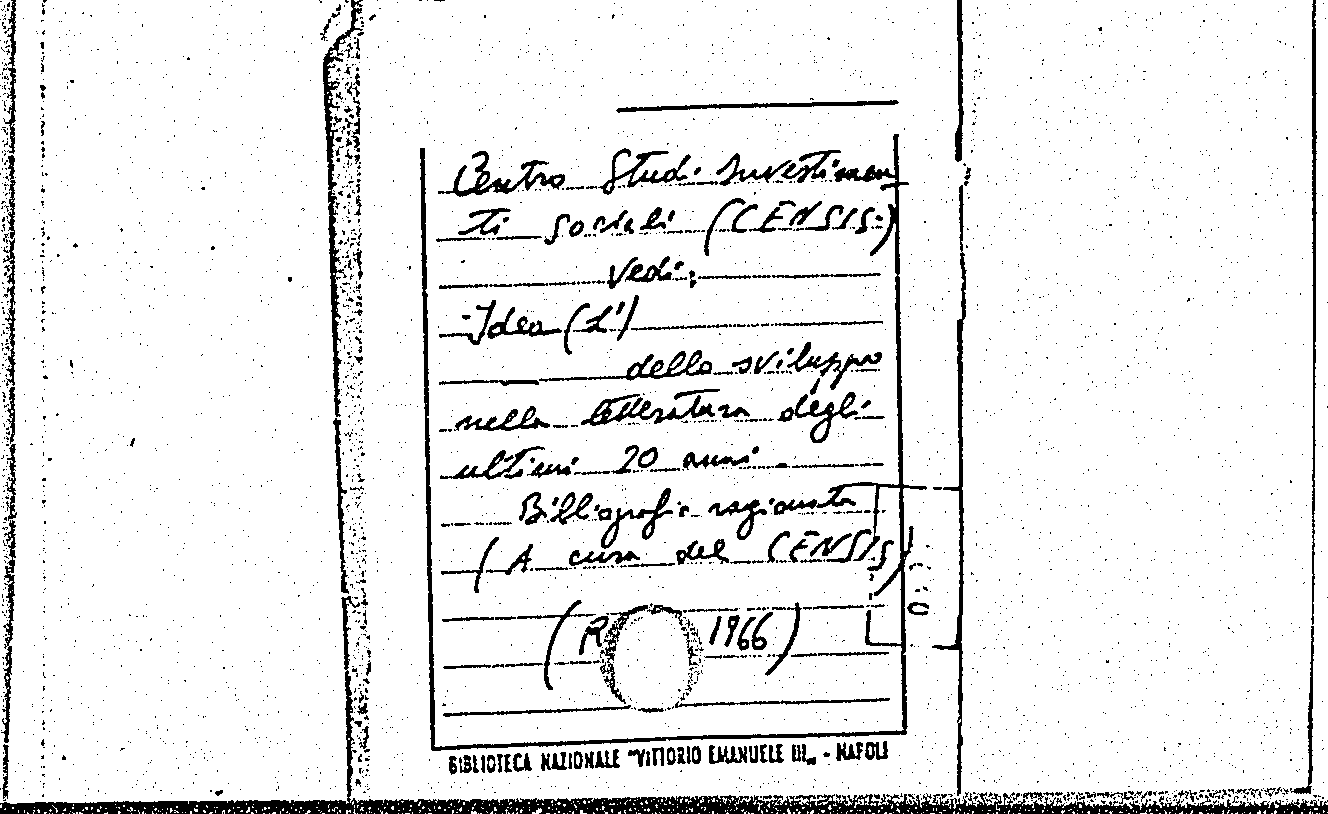 Centro Studi Investimen
ti sociali (CENSIS)
vedi:
- Idea (L')
dello sviluppo
nella letteratura degli
ultimi 20 anni.
Bibliografia ragionata
(A cura del CENSIS)
( 1966)
BIBLIOTECA NAZIONALE "VITTORIO EMANUELE III„ - NAPOLI